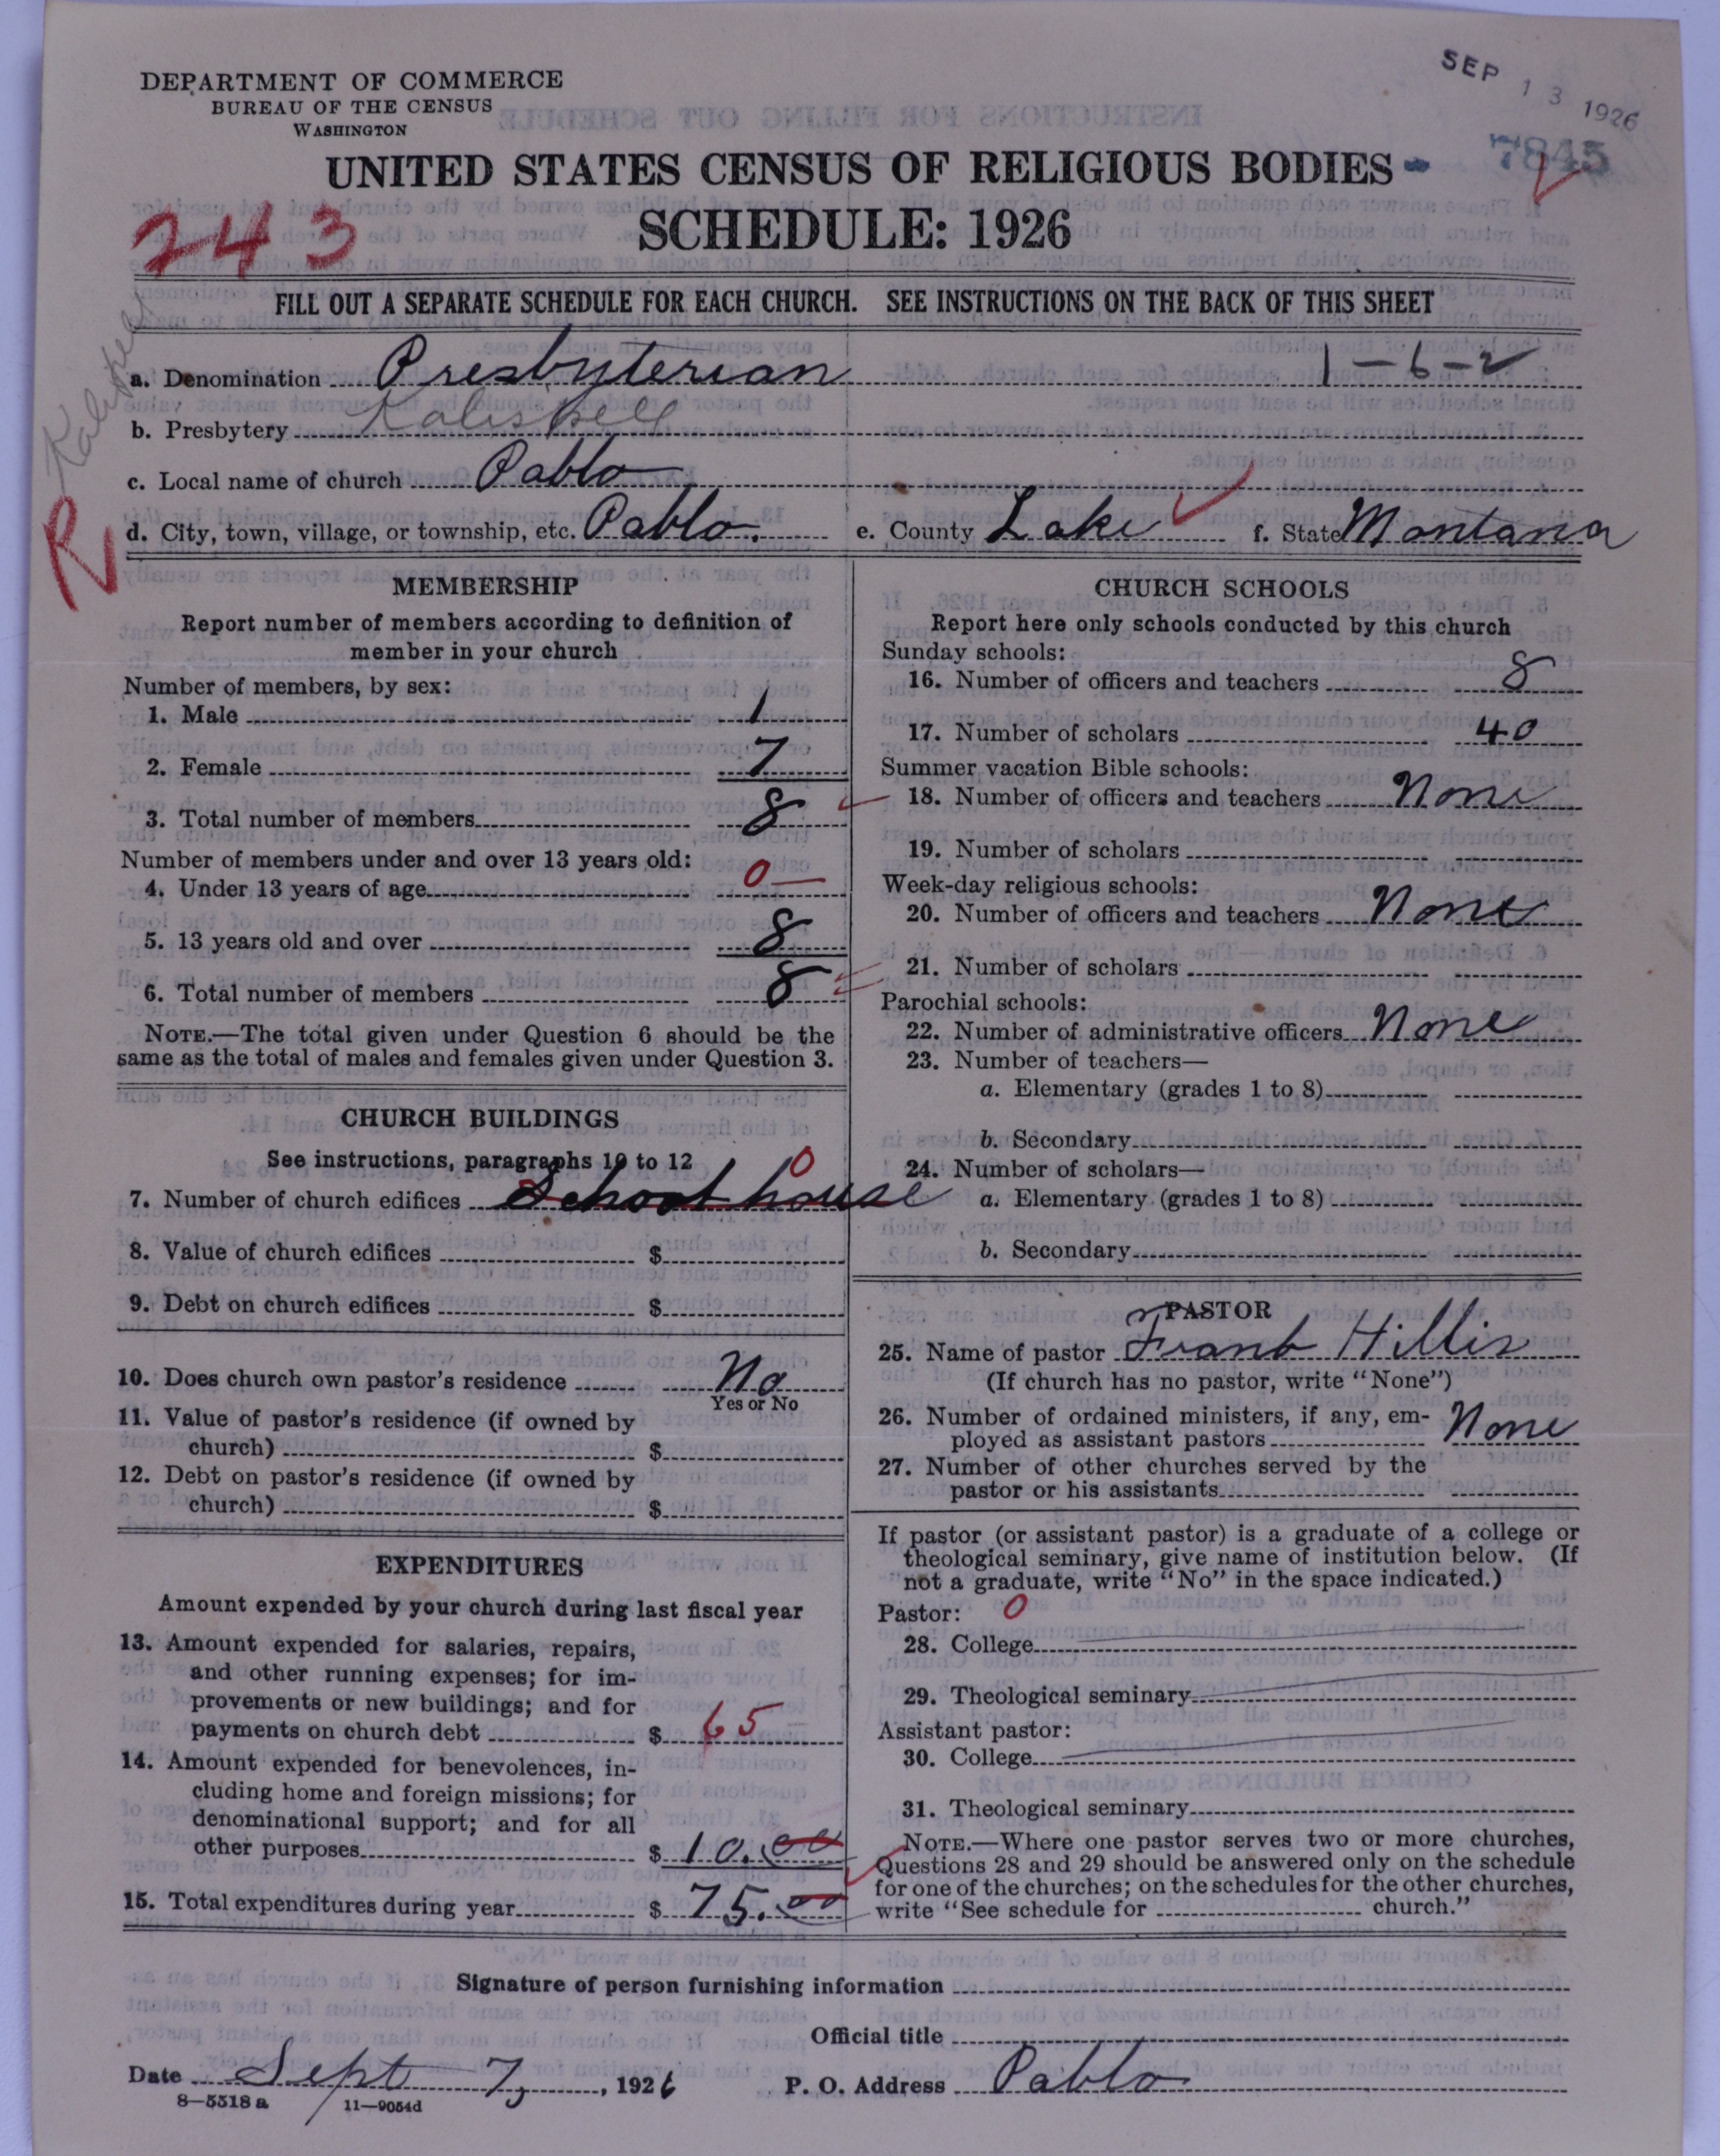 DEPARTMENT OF COMMERCE
BUREAU OF THE CENSUS
WASHINGTON
SEP 13 1926
7845
UNITED STATES CENSUS OF RELIGIOUS BODIES
243
SCHEDULE: 1926
FILL OUT A SEPARATE SCHEDULE FOR EACH CHURCH. SEE INSTRUCTIONS ON THE BACK OF THIS SHEET
Kalispell
R
a. Denomination Presbyterian 1-6-2
b. Presbytery Kalispell
c. Local name of church Pablo
d. City, town, village, or township, etc. Pablo. e. County Lake f. State Montana
MEMBERSHIP
Report number of members according to definition of
member in your church
Number of members, by sex:
1. Male 1
2. Female 7
3. Total number of members 8
Number of members under and over 13 years old:
4. Under 13 years of age 0
5. 13 years old and over 8
6. Total number of members 8
NOTE.—The total given under Question 6 should be the
same as the total of males and females given under Question 3.
CHURCH BUILDINGS
See instructions, paragraphs 10 to 12
0
7. Number of church edifices School house
8. Value of church edifices $
9. Debt on church edifices $
10. Does church own pastor's residence No
Yes or No
11. Value of pastor's residence (if owned by
church) $
12. Debt on pastor's residence (if owned by
church) $
EXPENDITURES
Amount expended by your church during last fiscal year
13. Amount expended for salaries, repairs,
and other running expenses; for im-
provements or new buildings; and for
payments on church debt $ 65
14. Amount expended for benevolences, in-
cluding home and foreign missions; for
denominational support; and for all
other purposes $ 10.00
15. Total expenditures during year $ 75.00
CHURCH SCHOOLS
Report here only schools conducted by this church
Sunday schools:
16. Number of officers and teachers 8
17. Number of scholars 40
Summer vacation Bible schools:
18. Number of officers and teachers None
19. Number of scholars
Week-day religious schools:
20. Number of officers and teachers None
21. Number of scholars
Parochial schools:
22. Number of administrative officers None
23. Number of teachers—
a. Elementary (grades 1 to 8)
b. Secondary
24. Number of scholars—
a. Elementary (grades 1 to 8)
b. Secondary
PASTOR
25. Name of pastor Frank Hillis
(If church has no pastor, write "None")
26. Number of ordained ministers, if any, em-
ployed as assistant pastors None
27. Number of other churches served by the
pastor or his assistants
If pastor (or assistant pastor) is a graduate of a college or
theological seminary, give name of institution below. (If
not a graduate, write "No" in the space indicated.)
Pastor: 0
28. College
29. Theological seminary
Assistant pastor:
30. College
31. Theological seminary
NOTE.—Where one pastor serves two or more churches,
Questions 28 and 29 should be answered only on the schedule
for one of the churches; on the schedules for the other churches,
write "See schedule for church."
Signature of person furnishing information
Official title
Date Sept 7, 1926 P. O. Address Pablo
8—5518 a 11—9054d